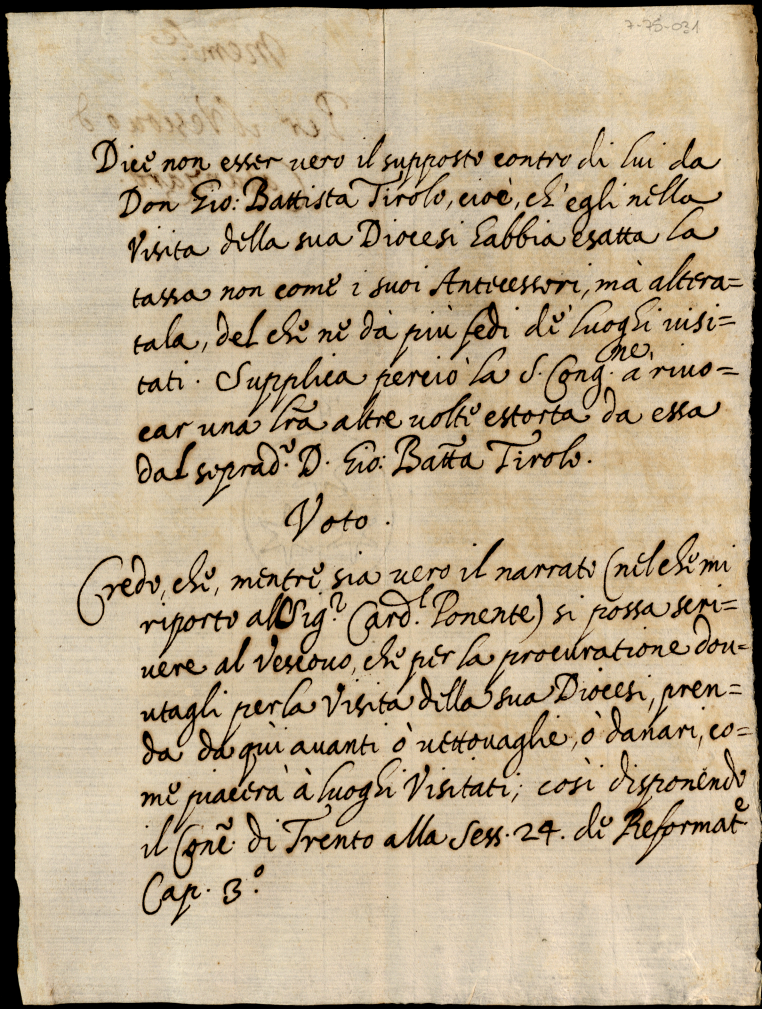 7-75-031
Dice non esser vero il supposto contro di lui da
Don Gio: Battista Tirolo, cioè, ch'egli nella
Visita della sua Diocesi habbia esatta la
tassa non come i suoi Antecessori, mà altera=
tala, del che ne dà più fedi de' luoghi visi=
tati. Supplica perciò la S. Cong.ne à riuo=
car una lr̃a altre uolte estorta da essa
dal soprad.º D. Gio: Batt̃a Tirolo.
Voto.
Credo, che, mentre sia uero il narrato (nel che mi
riporto al Sig.r Card.l Ponente) si possa scri=
uere al Vescouo, che per la procuratione dou=
utagli per la Visita della sua Diocesi, pren=
da da quì auanti ò uettouaglie, ò danari, co=
me piacerà à luoghi Visitati; così disponendo
il Conc̃. di Trento alla Sess. 24. de Reformat.e
Cap. 3.º